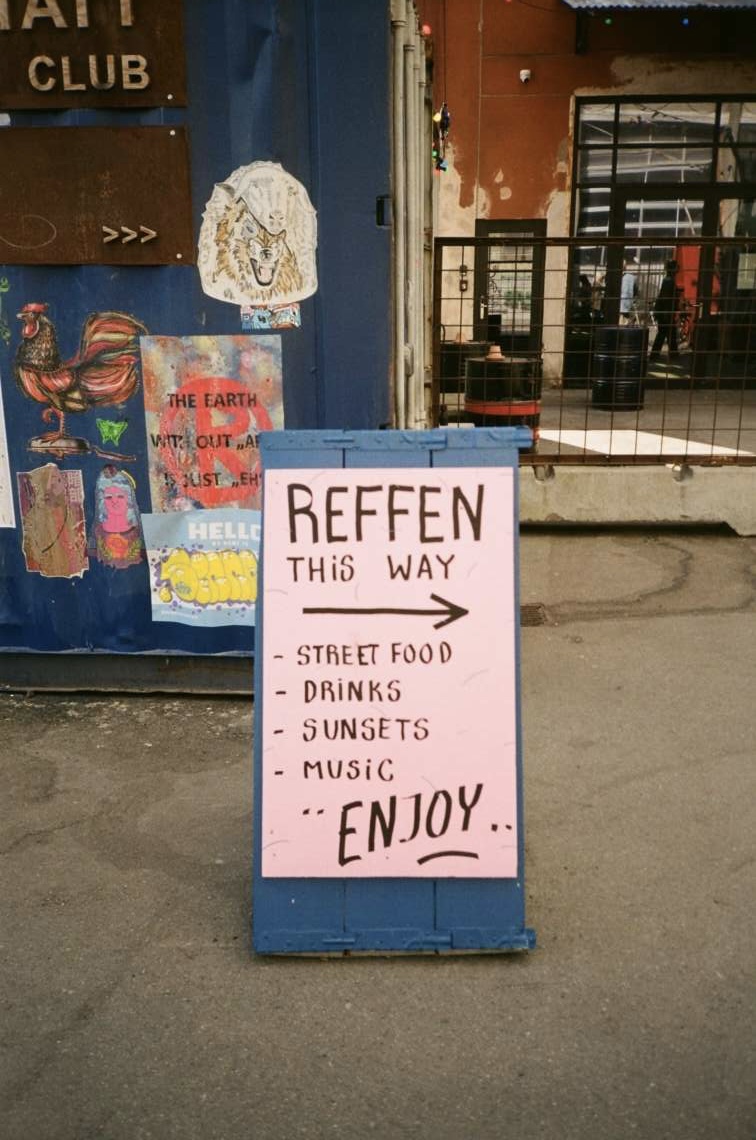 CLUB
>>>
THE EARTH
WITHOUT „
IS JUST „EH
HELLO
REFFEN
THiS WAY
- STREET FOOD
- DRiNKS
- SUNSETS
- MUSiC
¨ENJOY..